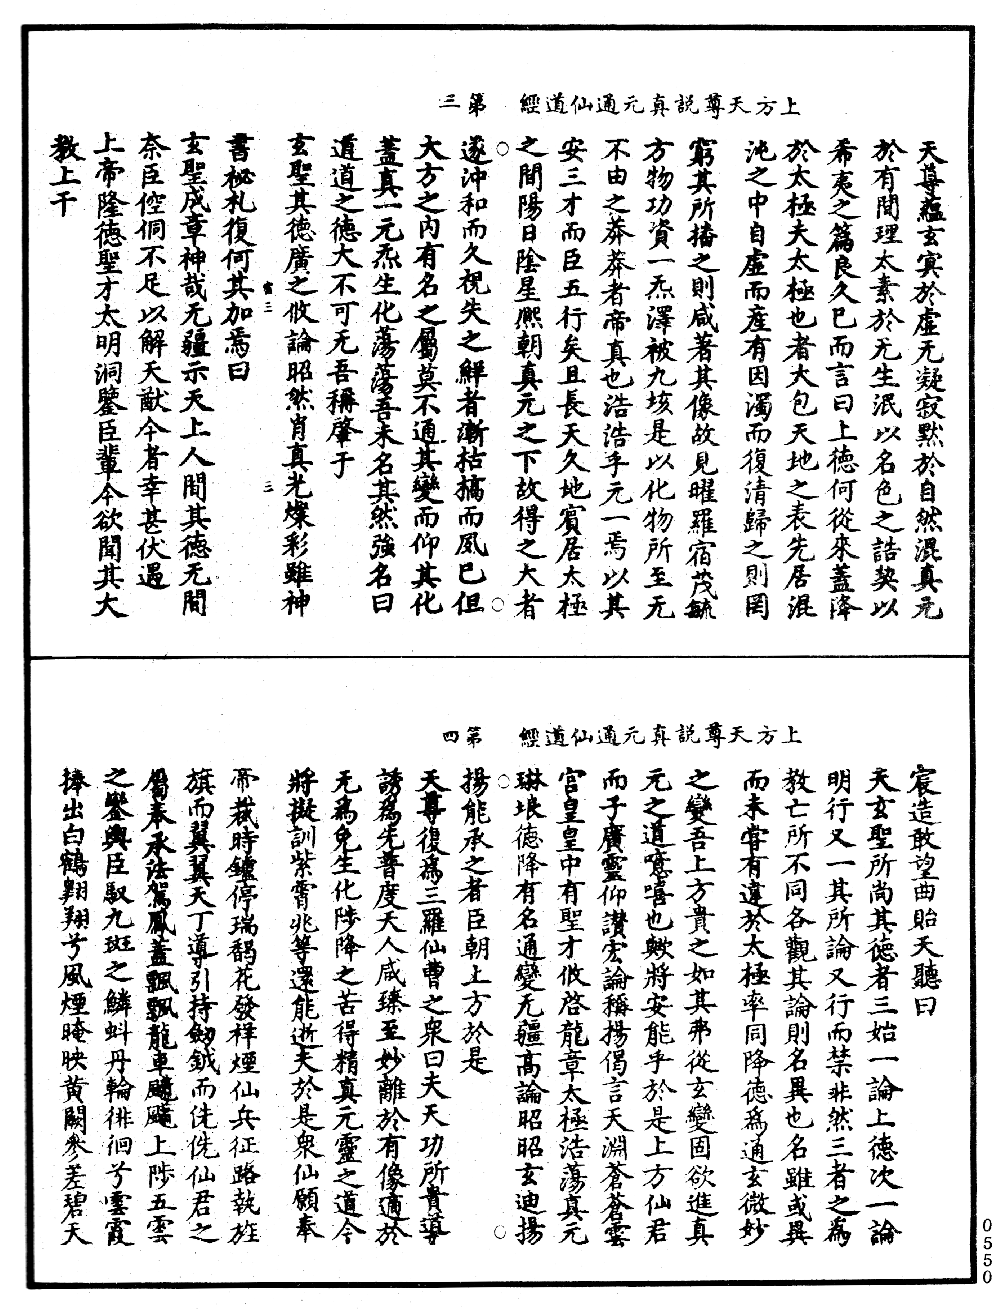 上方天尊說真元通仙道經　第三
天尊蘊玄冥於虛无凝寂默於自然混真元
於有聞理太素於无生泯以名色之詰契以
希夷之篇良久巳而言曰上德何從來蓋降
於太極夫太極也者大包天地之表先居混
沌之中自虛而産有因濁而復清歸之則罔
窮其所播之則咸著其像故見曜羅宿茂毓
方物功資一炁澤被九垓是以化物所至无
不由之莽莽者帝真也浩浩乎元一焉以其
安三才而臣五行矣且長天久地賓居太極
之間陽日陰星熈朝真元之下故得之大者
遂沖和而久視失之鮮者漸枯槁而夙已但
大方之內有名之屬莫不通其變而仰其化
蓋真一元炁生化蕩蕩吾未名其然強名曰
道道之德大不可无吾稱肇于
玄聖其德廣之攸論昭然肖真光燦彩雖神
書祕札復何其加焉曰
玄聖成章神哉无疆示天上人間其德无間
奈臣倥侗不足以解天猷今者幸甚伏遇
上帝隆德聖才太明洞鑒臣輩今欲聞其大
教上干
上方天尊說真元通仙道經　第四
宸造敢望曲貽天聽曰
夫玄聖所尚其德者三始一論上德次一論
明行又一其所論又行而禁非然三者之爲
教亡所不同各觀其論則名異也名雖或異
而未甞有違於太極率同降德爲通玄微妙
之變吾上方貴之如其弗從玄變固欲進真
元之道噫嘻也歟將安能乎於是上方仙君
而子廣靈仰讚宏論稱揚偈言天淵蒼蒼雲
宫皇皇中有聖才攸啓龍章太極浩蕩真元
琳琅德降有名通變无疆高論昭昭玄迪揚
揚能承之者臣朝上方於是
天尊復爲三羅仙曹之衆曰夫天功所貴導
誘爲先普度天人咸臻至妙離於有像適於
无爲免生化陟降之苦得精真元靈之道今
將擬訓紫霄兆等還能逝夫於是衆仙願奉
帝裁時鑪停瑞鵠花發祥煙仙兵征路執旌
旗而翼翼天丁導引持劒鉞而侁侁仙君之
屬奉承法駕鳳蓋飄飄龍車飈飈上陟五雲
之鑾輿臣馭九斑之鱗蚪丹輪徘徊兮雲霞
捧出白鶴翺翔兮風煙晻映黄闕參差碧天
0550